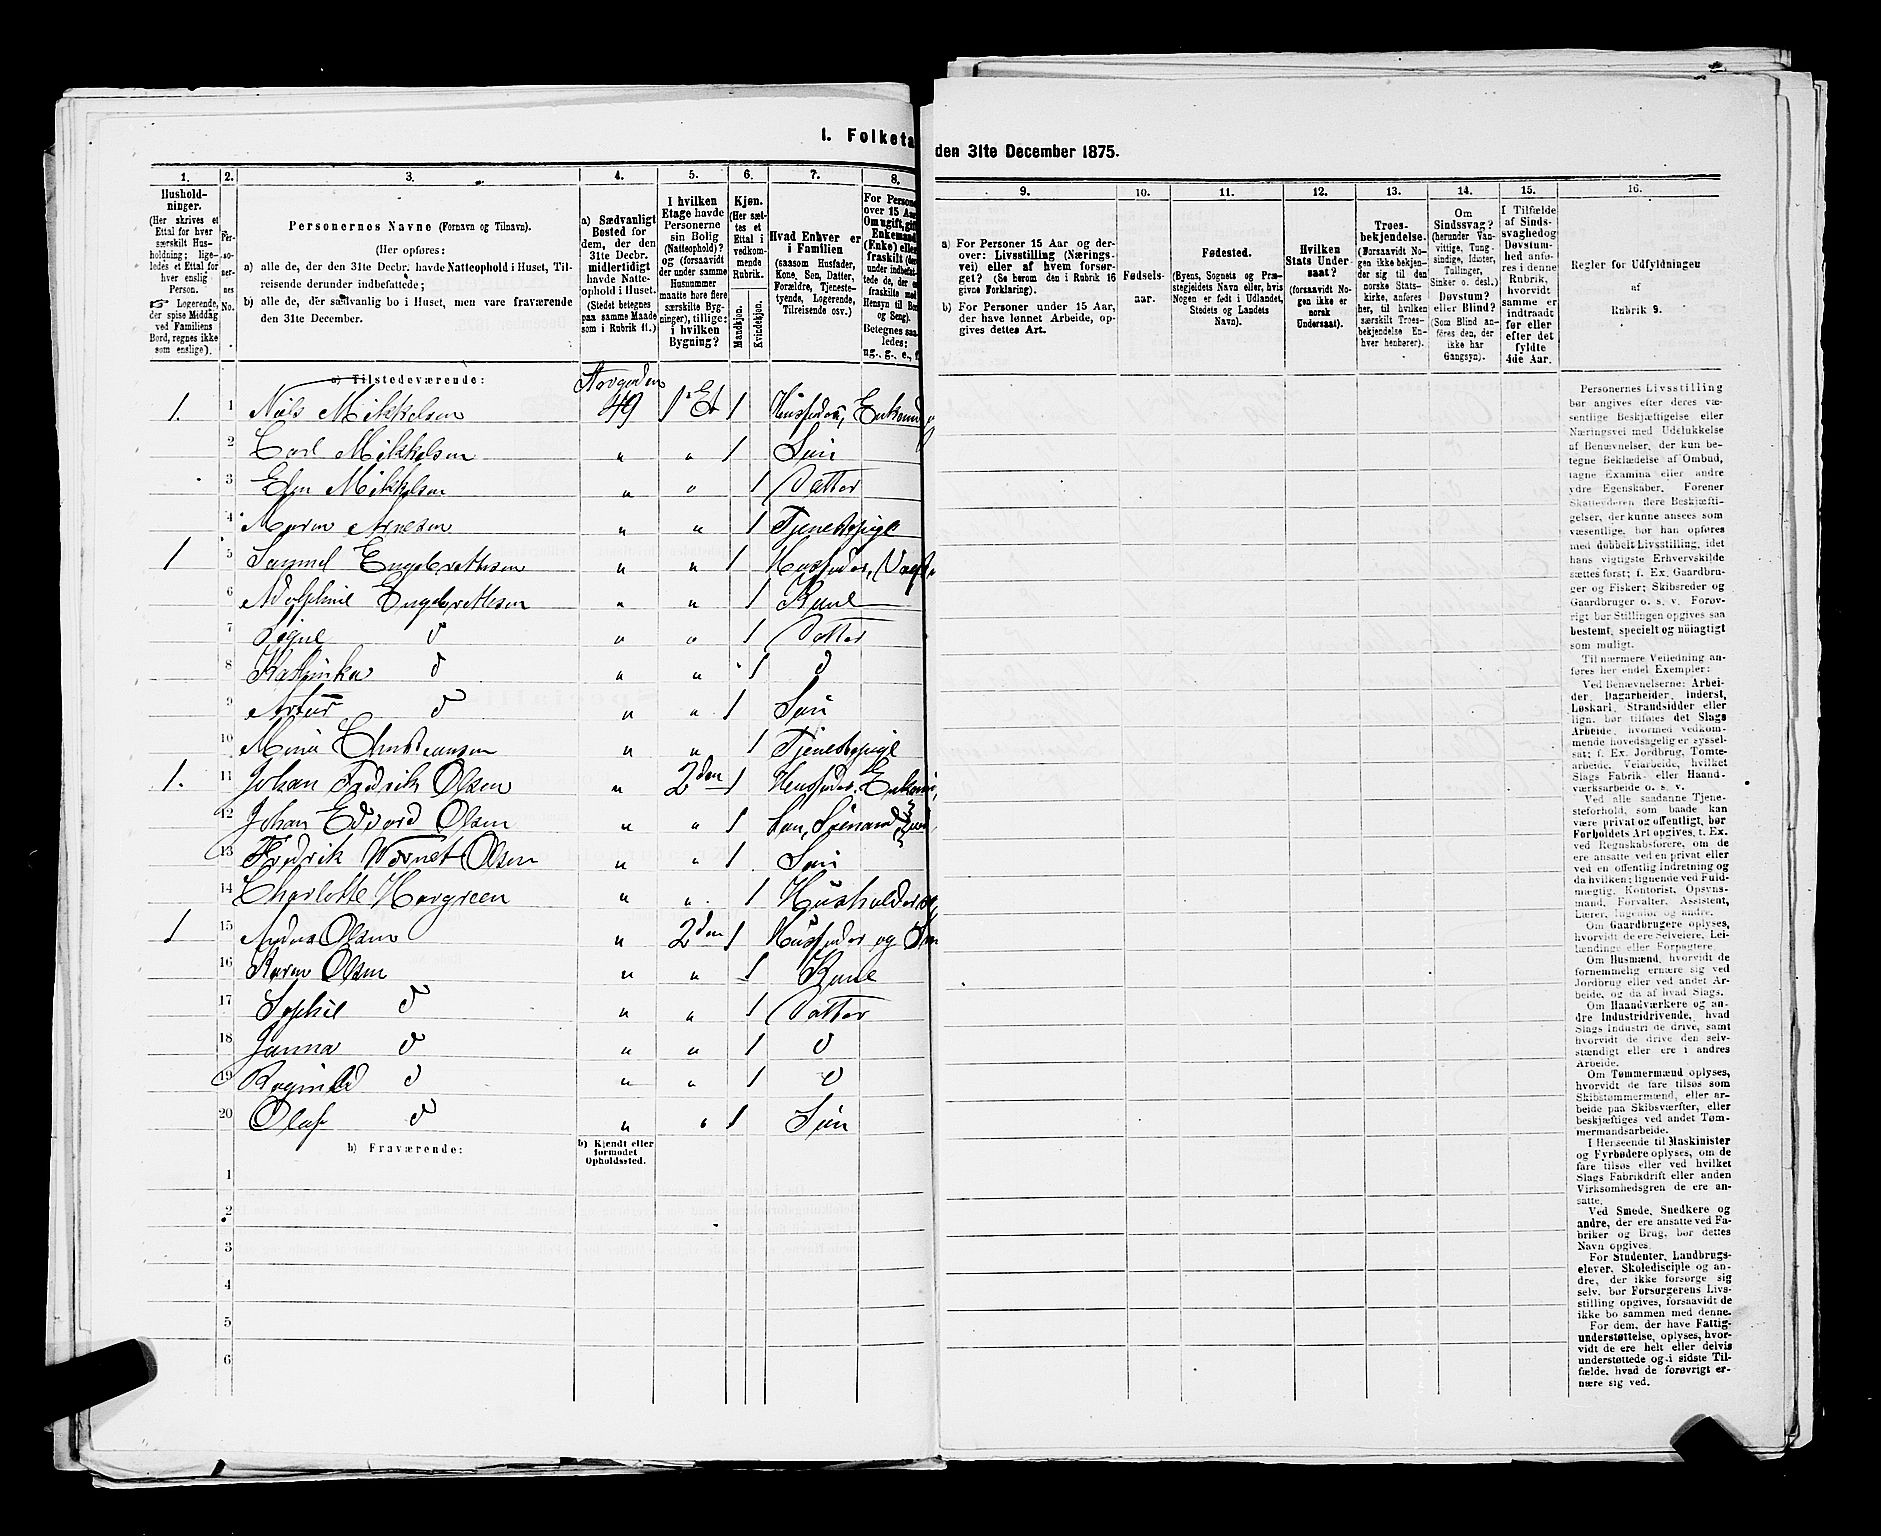 I. Folketa den 31te December 1875.
1. 2. 3. 4. 5. 6. 7. 8. 9. 10. 11. 12. 13. 14. 15. 16.
Hushold-
ninger.
(Her skrives et
Ettal for hver
særskilt Hus-
holdning; lige-
ledes et Ettal for
hver enslig
Person.
☞ Logerende,
der spise Middag
ved Familiens
Bord, regnes ikke
som enslige).
Per-
soner-
nes
No.
Personernes Navne (Fornavn og Tilnavn).
(Her opføres:
a) alle de, der den 31te Decbr. havde Natteophold i Huset, Til-
reisende derunder indbefattede;
b) alle de, der sædvanlig bo i Huset, men vare fraværende
den 31te December.
a) Sædvanligt
Bosted for
dem, der den
31te Decbr.
midlertidigt
havde Natte-
ophold i Huset.
(Stedet betegnes
paa samme Maade
som i Rubrik 11.)
I hvilken
Etage havde
Personerne
sin Bolig
(Natteophold)?
og (forsaavidt
der under samme
Husnummer
maatte høre flere
særskilte Byg-
ninger), tillige:
i hvilken
Bygning?
Kjøn.
(Her sæt-
tes et
Ettal i
vedkom-
mende
Rubrik.
Mandkjøn.
Kvindekjøn.
Hvad Enhver er
i Familien
(saasom Husfader,
Kone, Søn, Datter,
Forældre, Tjeneste-
tyende, Logerende,
Tilreisende osv.)
For Persone
over 15 Aar
Om ugift, gift
Enkemand
(Enke) eller
fraskilt (der
under indbefat-
tede de, der er
fraskilte med
Hensyn til Bor
og Seng).
Betegnes saa-
ledes:
ug., g., e., f.
a) For Personer 15 Aar og der-
over: Livsstilling (Nærings-
vei) eller af hvem forsør-
get? (Se herom den i Rubrik 16
givne Forklaring).
b) For Personer under 15 Aar,
der have lønnet Arbeide, op-
gives dettes Art.
Fødsels-
aar.
Fødested.
(Byens, Sognets og Præ-
stegjeldets Navn eller, hvis
Nogen er født i Udlandet,
Stedets og Landets
Navn).
Hvilken
Stats Under-
saat?
(forsaavidt No-
gen ikke er
norsk
Undersaat).
Troes-
bekjendelse.
(Forsaavidt No-
gen ikke bekjen-
der sig til den
norske Stats-
kirke, anføres
her, til hvilken
særskilt Troes-
bekjendelse En-
hver henhører).
Om
Sindssvag?
(herunder Van-
vittige, Tung-
sindige, Idioter,
Tullinger,
Sinker o. desl.)
Døvstum?
eller Blind?
(Som Blind an-
føres den, der
ikke har
Gangsyn).
I Tilfælde
af Sinds-
svaghed og
Døvstum-
hed anfø-
res i denne
Rubrik,
hvorvidt
samme er
indtraadt
før eller
efter det
fyldte
4de Aar.
Regler for Udfyldningen
af
Rubrik 9.
a) Tilstedeværende:
1. 1 Niels Mikkelsen 49 1 Et 1 Husfader, Enkemd
2 Carl Mikkelsen " " 1 Søn
3 Mikkelsen " " 1 Datter
4 Maren Arnesen " " 1 Tjenestepige
1 5 Samuel Engebrettsen " " 1 Husfader,
6 Adolphine Engebrettsen " " 1 Kone
7 Signe d " " 1 Datter
8 Kathinka d " " 1 d
9 Artur d " " 1 Søn
10 Mina Christiansen " " 1 Tjenestepige
1. 11 Johan Fredrik Olsen " 2den 1 Husfader.
12 Johan Edvard Olsen " " 1 Søn, Sømand
13 Fredrik Olsen " " 1 Søn
14 Charlotte Horgreen " " 1
1 15 Anders Olsen " 2den 1 Husfader og
16 Karen Olsen " " 1 Kone
17 Sophie d " " 1 Datter
18 Janna d " " 1 d
19 Ragnild d " " 1 d
20 Olaf d " " 1 Søn
b) Fraværende:
b) Kjendt eller
formodet
Opholdssted.
1
2
3
4
5
6
Personernes Livsstilling
bør angives efter deres væ-
sentlige Beskjæftigelse eller
Næringsvei med Udelukkelse
af Benævnelser, der kun be-
tegne Beklædelse af Ombud,
tagne Examina eller andre
ydre Egenskaber. Forener
Skatteyderen flere Beskjæfti-
gelser, der kunne ansees som
væsentlige, bør han opføres
med dobbelt Livsstilling, idet
hans vigtigste Erhvervskilde
sættes først; f. Ex. Gaardbru-
ger og Fisker; Skibsreder og
Gaardbruger o. s. v. Forøv-
rigt bør Stillingen opgives saa
bestemt, specielt og nøiagtigt
som muligt.
Til nærmere Veiledning an-
føres her endel Exempler:
Ved Benævnelserne: Arbei-
der, Dagarbeider, Inderst,
Løskari, Strandsidder eller
lign. bør tilføies det Slags
Arbeide, hvormed vedkom-
mende hovedsagelig er syssel-
sat; f. Ex. Jordbrug, Tomte-
arbeide, Veiarbeide, hvilket
Slags Fabrik- eller Haand-
værksarbeide o. s. v.
Ved alle saadanne Tjene-
steforhold, som baade kan
være privat og offentligt, bør
Forholdets Art opgives, t. Ex.
ved Regnskabsførere, om de
ere ansatte ved en privat eller
ved en offentlig indretning og
da hvilken; lignende ved Fuld-
mægtig, Kontorist, Opsyns-
mand, Forvalter, Assistent,
Lærer, Ingeniør og andre.
Om Gaardbrugere oplyses,
hvorvidt de ere Selveiere, Lei-
lændinge eller Forpagtere.
Om Husmænd, hvorvidt de
fornemmelig ernære sig ved
Jordbrug eller ved andet Ar-
beide, og da af hvad Slags.
Om Haandværkere og an-
dre Industridrivende, hvad
Slags Industri de drive, samt
hvorvidt de drive den selv-
stændigt eller ere i andres
Arbeide.
Om Tømmermænd oplyses,
hvorvidt de fare tilsøs som
Skibstømmermænd, eller ar-
beide paa Skibsværfter, eller
beskjæftiges ved andet Tøm-
mermandsarbeide.
I Henseende til Maskinister
og Fyrbødere oplyses, om de
fare tilsøs eller ved hvilket
Slags Fabrikdrift eller anden
Virksomhedsgren de ere an-
satte.
Ved Smede, Snedkere og
andre, der ere ansatte ved Fa-
briker og Brug, bør dettes
Navn opgives.
For Studenter, Landbrugs-
elever, Skoledisciple og an-
dre, der ikke forsørge sig
selv, bør Forsørgerens Livs-
stilling opgives, forsaavidt de
ikke bo sammen med denne.
For dem, der have Fattig-
understøttelse, oplyses, hvor-
vidt de ere helt eller delvis
understøttede og i sidste Til-
fælde, hvad de forøvrigt er-
nære sig ved.